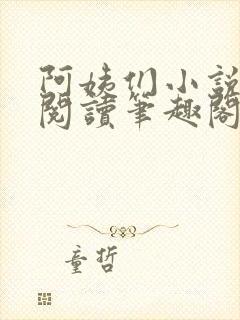 阿姨们小説
閱讀筆趣閣
童哲